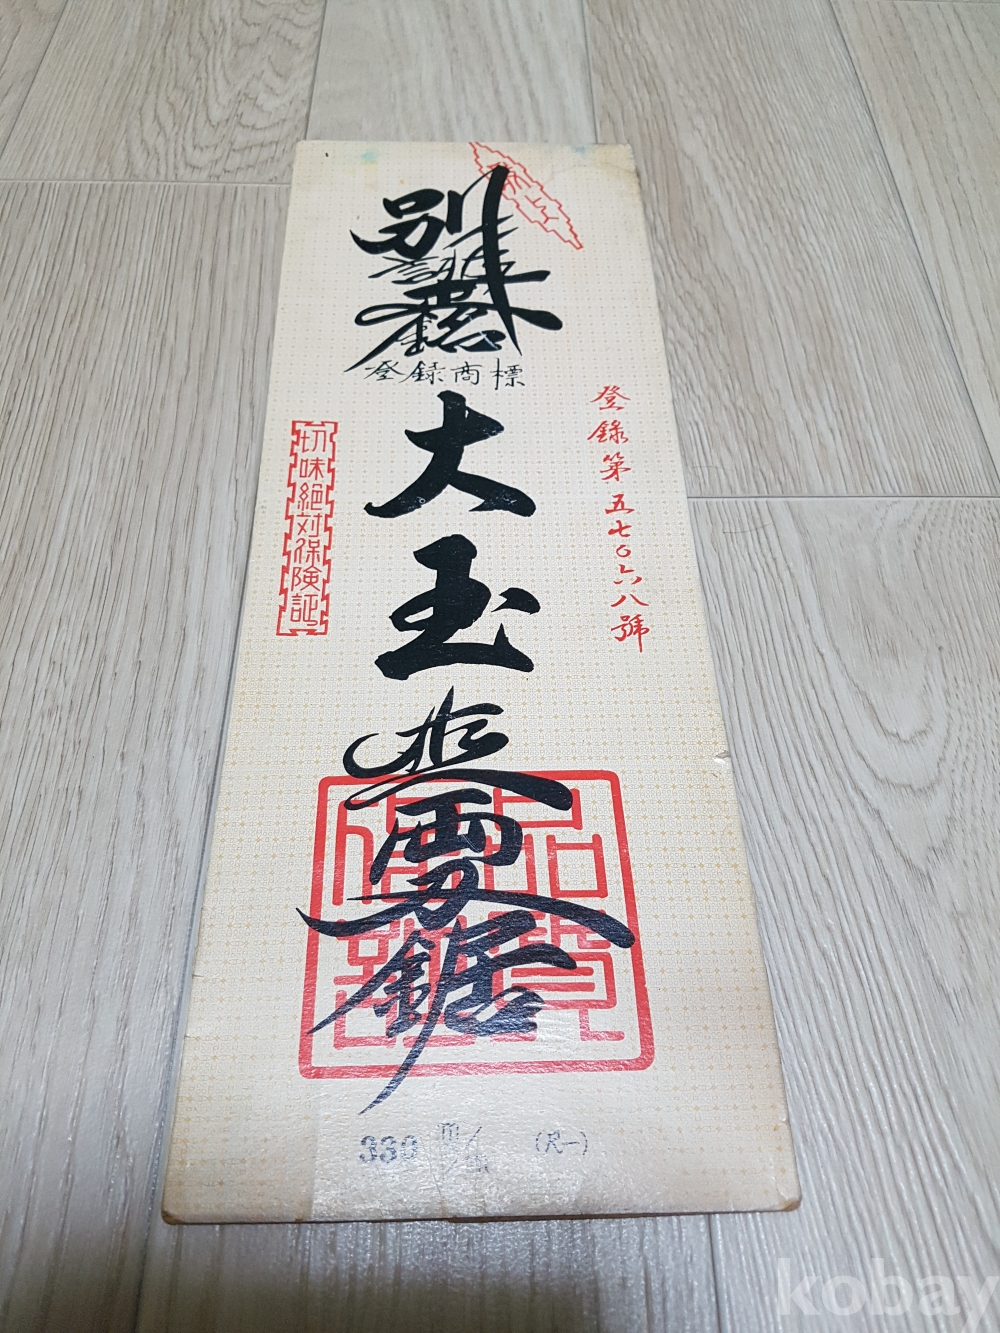 別
登録商標
大玉
両刃鋸
登録第五七〇六八號
切味絶対保険証
330 m/m (尺一)
kobay